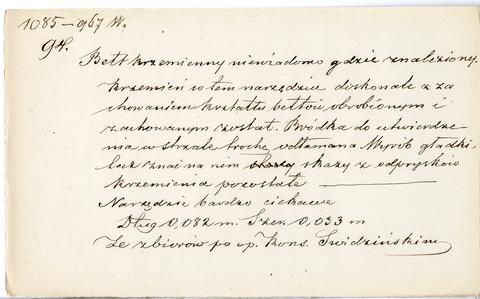 1085–967 W.
94.
Bełt krzemienny niewiadomo gdzie znaleziony.
Krzemień w tem narzędziu doskonale z za
chowaniem kształtu bełtów obrobionym i
zachowanym został. Bródka do utwierdze
nia w strzale trochę odłamana Wyrób gładki
lecz znać na nim skazy z odprysków
krzemienia pozostałe
Narzędzie bardzo ciekawe
Dług 0,082 m. Szer. 0,033 m
Ze zbiorów po śp. Kons. Świdzińskim